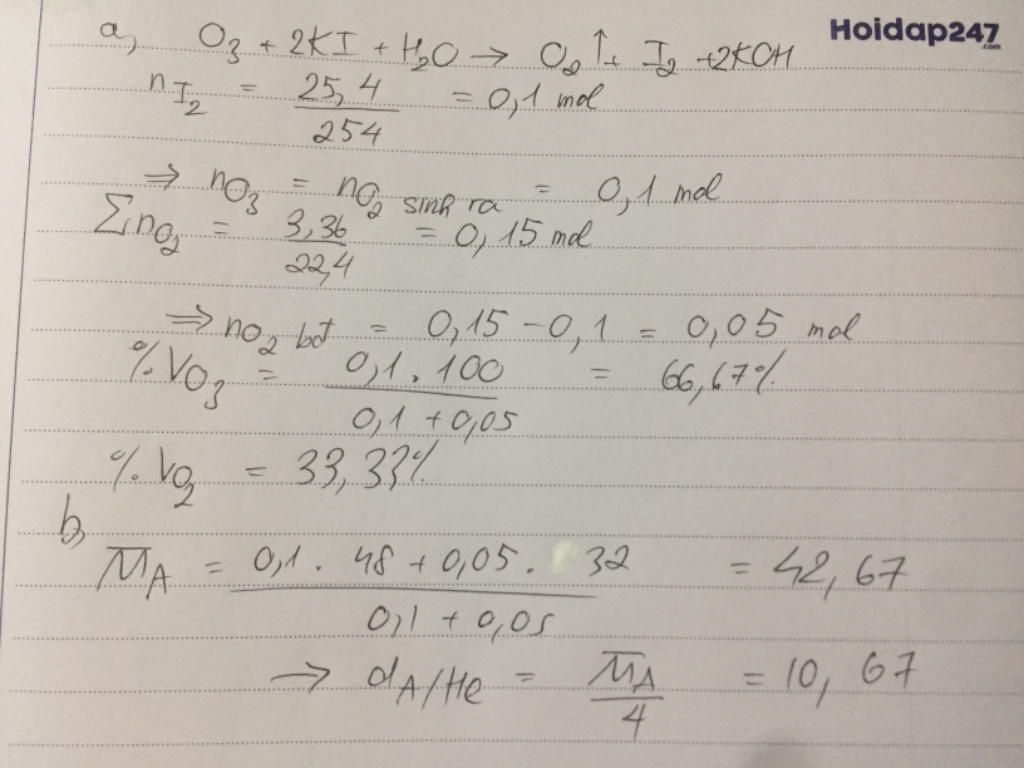 Hoidap247
.com
a, O3 + 2KI + H2O → O2↑ + I2 + 2KOH
nI2 = 25,4 / 254 = 0,1 mol
⇒ nO3 = nO2 sinh ra = 0,1 mol
ΣnO2 = 3,36 / 22,4 = 0,15 mol
⇒ nO2 bđ = 0,15 - 0,1 = 0,05 mol
%VO3 = 0,1 . 100 / 0,1 + 0,05 = 66,67%
%VO2 = 33,33%
b,
M̅A = 0,1 . 48 + 0,05 . 32 / 0,1 + 0,05 = 42,67
→ dA/He = M̅A / 4 = 10,67